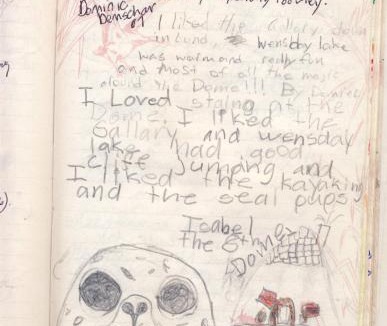 Dominic
I liked the Gallery down
in Lund, wensday lake
was warm and really fun
and most of all the meals
around the Dome!!! By Daniel
I Loved staing at the
Dome. I liked the
Gallary and wensday
lake had good
cliff jumping and
I liked the kayaking
and the seal pups
Isabel
the 6th
Dome